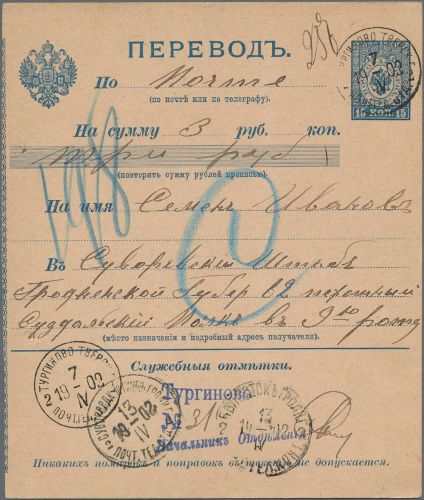 257
ПЕРЕВОДЪ.
15 КОП. 15
По Почте
(по почтѣ или по телеграфу).
На сумму 3 руб. коп.
три руб
(повторить сумму рублей прописью).
198
На имя Семенъ Ивановъ
Въ Суворовскій Штабъ
Гродненской Губер въ 2 пехотный
Суздальскій Полкъ въ 9ю роту
(мѣсто назначенія и подробный адресъ получателя).
Служебныя отмѣтки.
ТУРГИНОВО ТВЕРСК
7
19 02
IV
2 ПОЧТ.ТЕЛ.
13
19 02
IV
ПОЧТ. ТЕЛ
Тургинова
№ 31
Начальникъ Отдѣленія
БѢЛОСТОКЪ ГРОДН.
13
Никакихъ помарокъ и поправокъ въ текстѣ не допускается.